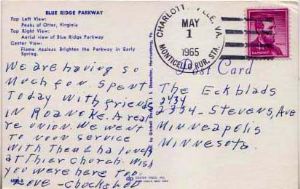 BLUE RIDGE PARKWAY
Top Left View:
Peaks of Otter, Virginia
Top Right View:
Aerial View of Blue Ridge Parkway
Center View:
Flame Azaleas Brighten the Parkway in Early
Spring.
We are having so
much fun. Spent
Today with friends
in Roanoke. A real
re union. We went
to your service
with Them
at Thier Church. Wish
you were here too.
Love
CHARLOTTESVILLE, VA.
MAY
1
1965
MONTICELLO RUR. STA.
Post Card
The Eckblads
2434
2374 - Stevens, Ave
Minneapolis
Minnesota